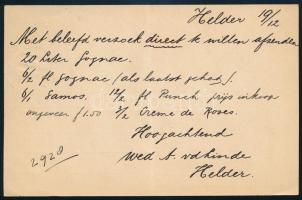 Helder 19/12
Met beleefd verzoek direct te willen afzenden
20 Liter Cognac.
6/2 fl Cognac (als laatst gehad)
6/1 Samos. 12/2 fl Punch prijs inkoop
ongeveer f 1.00 3/2 Creme de Roses.
Hoogachtend
Wed A. vd Linde
Helder.
2920